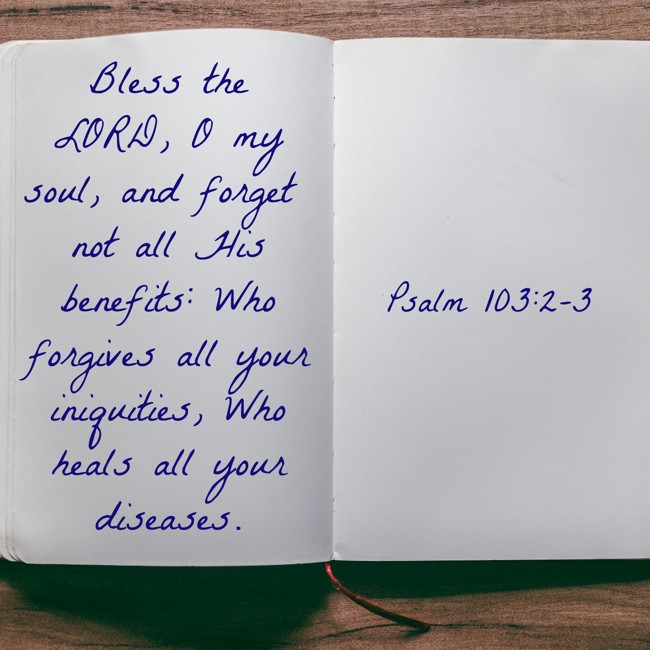 Bless the
LORD, O my
soul, and forget
not all His
benefits: Who
forgives all your
iniquities, Who
heals all your
diseases.
Psalm 103:2-3